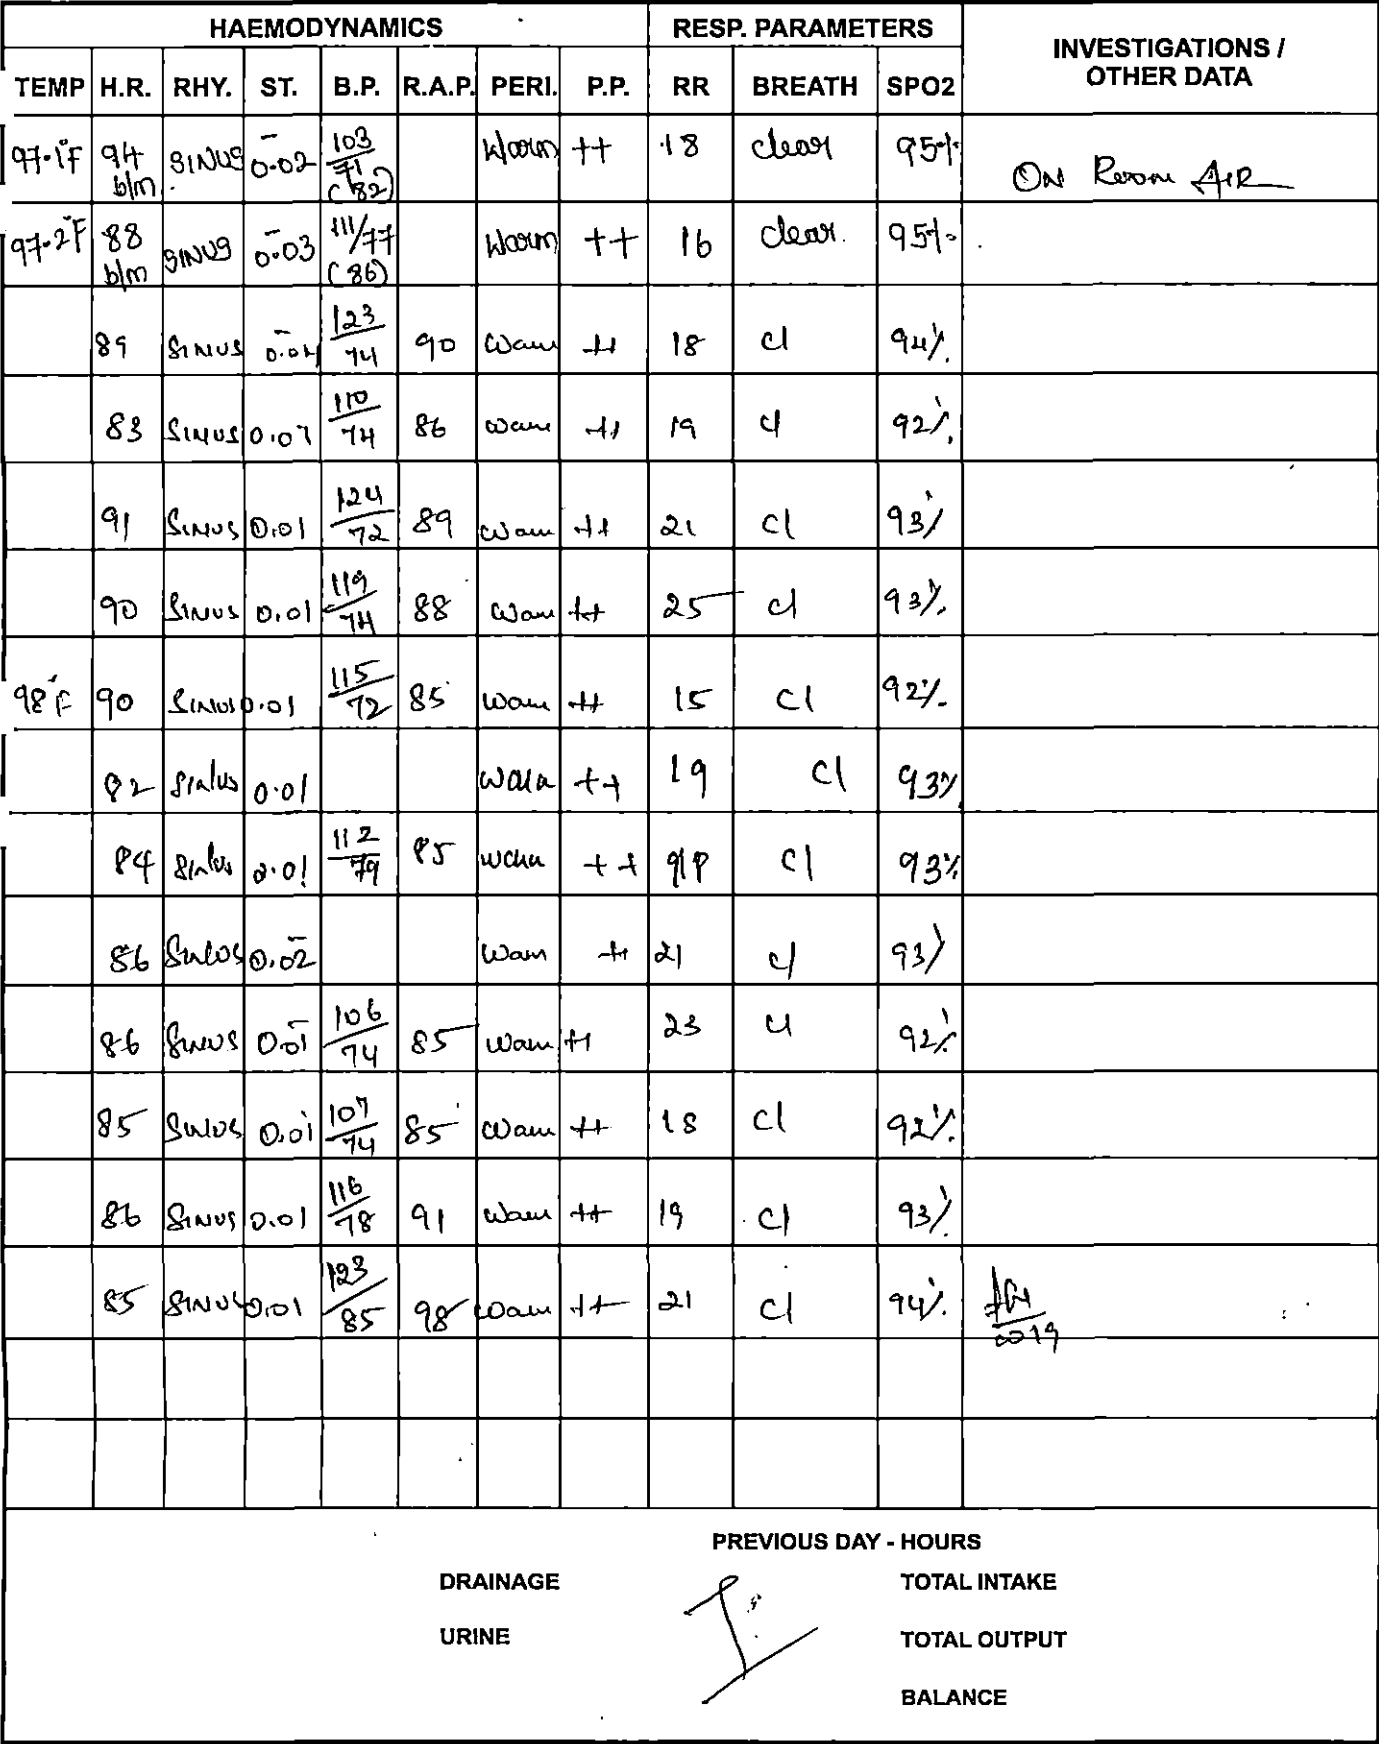 HAEMODYNAMICS RESP. PARAMETERS INVESTIGATIONS / OTHER DATA
TEMP H.R. RHY. ST. B.P. R.A.P. PERI. P.P. RR BREATH SPO2
97.1°F 94 b/m SINUS -0.02 103/71 (82) Warm ++ 18 clear 95% ON Room AIR
97.2°F 88 b/m SINUS -0.03 111/77 (86) Warm ++ 16 clear. 95%
89 SINUS 123/74 90 Wam ++ 18 cl 94%
83 SINUS 0.07 110/74 86 wam ++ 19 cl 92%
91 SINUS 0.01 124/72 89 wam ++ 21 cl 93%
90 SINUS 0.01 119/74 88 Wam ++ 25 cl 93%
98°F 90 SINUS 0.01 115/72 85 Wam ++ 15 cl 92%
SINUS 0.01 ++ 19 cl 93%
84 SINUS 0.01 112/79 85 ++ cl 93%
86 SINUS -0.02 Wam ++ 21 cl 93%
86 SINUS -0.01 106/74 85 Wam ++ 23 cl 92%
85 SINUS 0.01 107/74 85 Wam ++ 18 cl 92%
86 SINUS 0.01 116/78 91 Wam ++ 19 cl 93%
85 SINUS 0.01 123/85 98 Wam ++ 21 cl 94%
PREVIOUS DAY - HOURS
DRAINAGE TOTAL INTAKE
URINE TOTAL OUTPUT
BALANCE